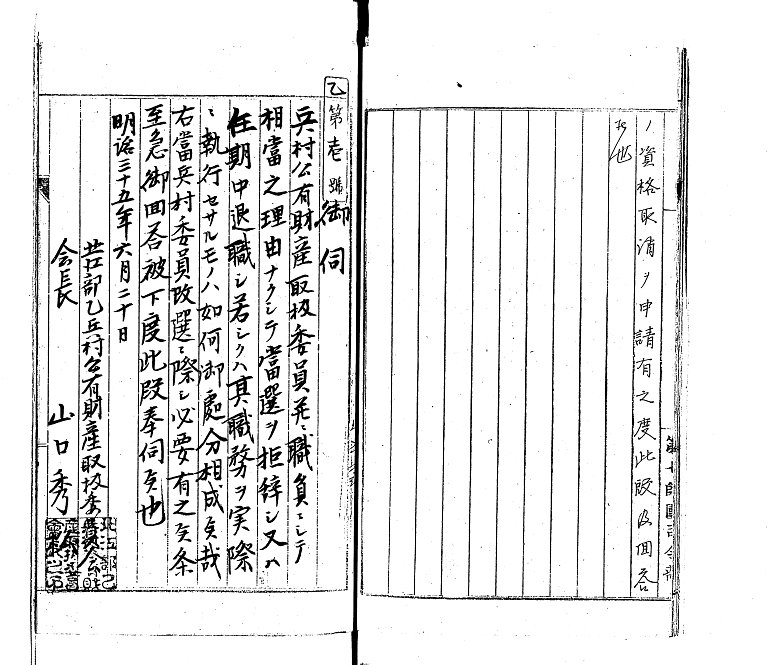 ノ資格取消ヲ申請有之度此段及回答
候也
乙第壱號
御伺
兵村公有財産取扱委員并ニ職員ニシテ
相當之理由ナクシテ當選ヲ拒辞シ又ハ
任期中退職シ若シクハ其職務ヲ実際
ニ執行セサルモノハ如何御處分相成候哉
右當兵村委員改選ニ際シ必要有之候条
至急御回答被下度此段奉伺候也
明治三十五年六月二十日
部乙兵村公有財産取扱委員
会長 山口秀